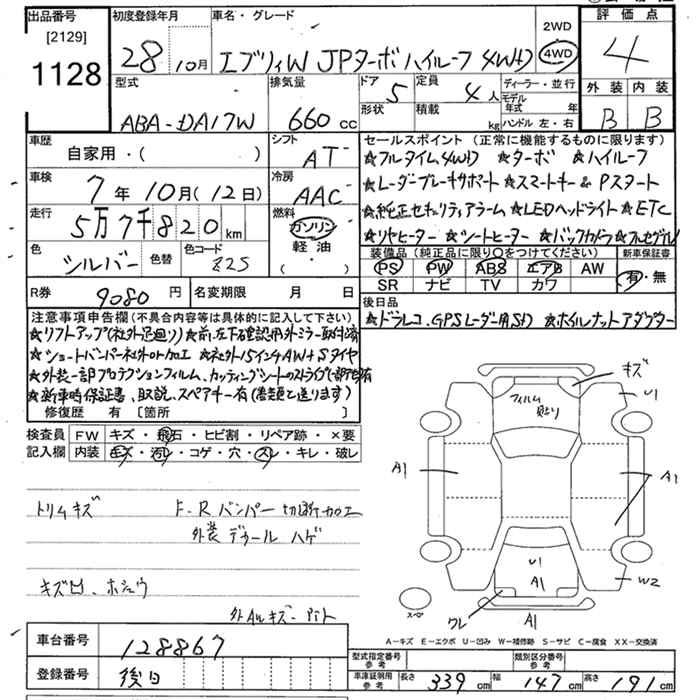 出品番号 [2129] 1128
初度登録年月 28 10月
車名・グレード エブリィW JPターボ ハイルーフ 4WD
2WD 4WD
評価点 4
型式 ABA-DA17W
排気量 660 cc
ドア 5 形状
定員 4人 積載 kg
ディーラー・並行
モデル年式 年
ハンドル 左・右
外装 内装
B B
車歴 自家用・( )
シフト AT
車検 7年10月(12日)
冷房 AAC
走行 5万7千820km
燃料 ガソリン 軽油 ( ・ )
色 シルバー 色替 色コード Z2S
R券 9080円 名変期限 月 日
セールスポイント(正常に機能するものに限ります)
★フルタイム4WD ★ターボ ★ハイルーフ
★レーダーブレーキサポート ★スマートキー&Pスタート
★純正セキュリティアラーム ★LEDヘッドライト ★ETC
★リヤヒーター ★シートヒーター ★バックカメラ ★フルセグナビ
装備品(純正品に限り○をつけてください) 新車保証書
PS PW ABS エアB AW 有・無
SR ナビ TV カワ
後日品
★ドラレコ、GPSレーダー用SD ★ホイルナットアダプター
注意事項申告欄(不具合内容等は具体的に記入して下さい)
★リフトアップ(社外足廻り) ★前左下確認用外ミラー取付済
★ショートバンパー社外or加工 ★社外15インチAW+Sタイヤ
★外装一部プロテクションフィルム、カッティングシートのストライプ(部アセ)有
★新車時保証書、取説、スペアキー有(書類と送ります)
修復歴 有 [箇所 ]
検査員記入欄 FW キズ・飛石・ヒビ割・リペア跡・×要
内装 キズ・汚レ・コゲ・穴・スレ・キレ・破レ
トリムキズ F-Rバンパー切断加工
外装デカールハゲ
キズ凹、ホシュウ
外AWキズ
キズ
フィルム貼り
U1
A1
A1
U1
A1
W2
ワレ
A1
スペ
A-キズ E-エクボ U-凹み W-補修跡 S-サビ C-腐食 XX-交換済
車台番号 128867
登録番号 後日
型式指定番号 参考 類別区分番号 参考
車庫証明用 参考 長さ 339cm 幅 147cm 高さ 191cm